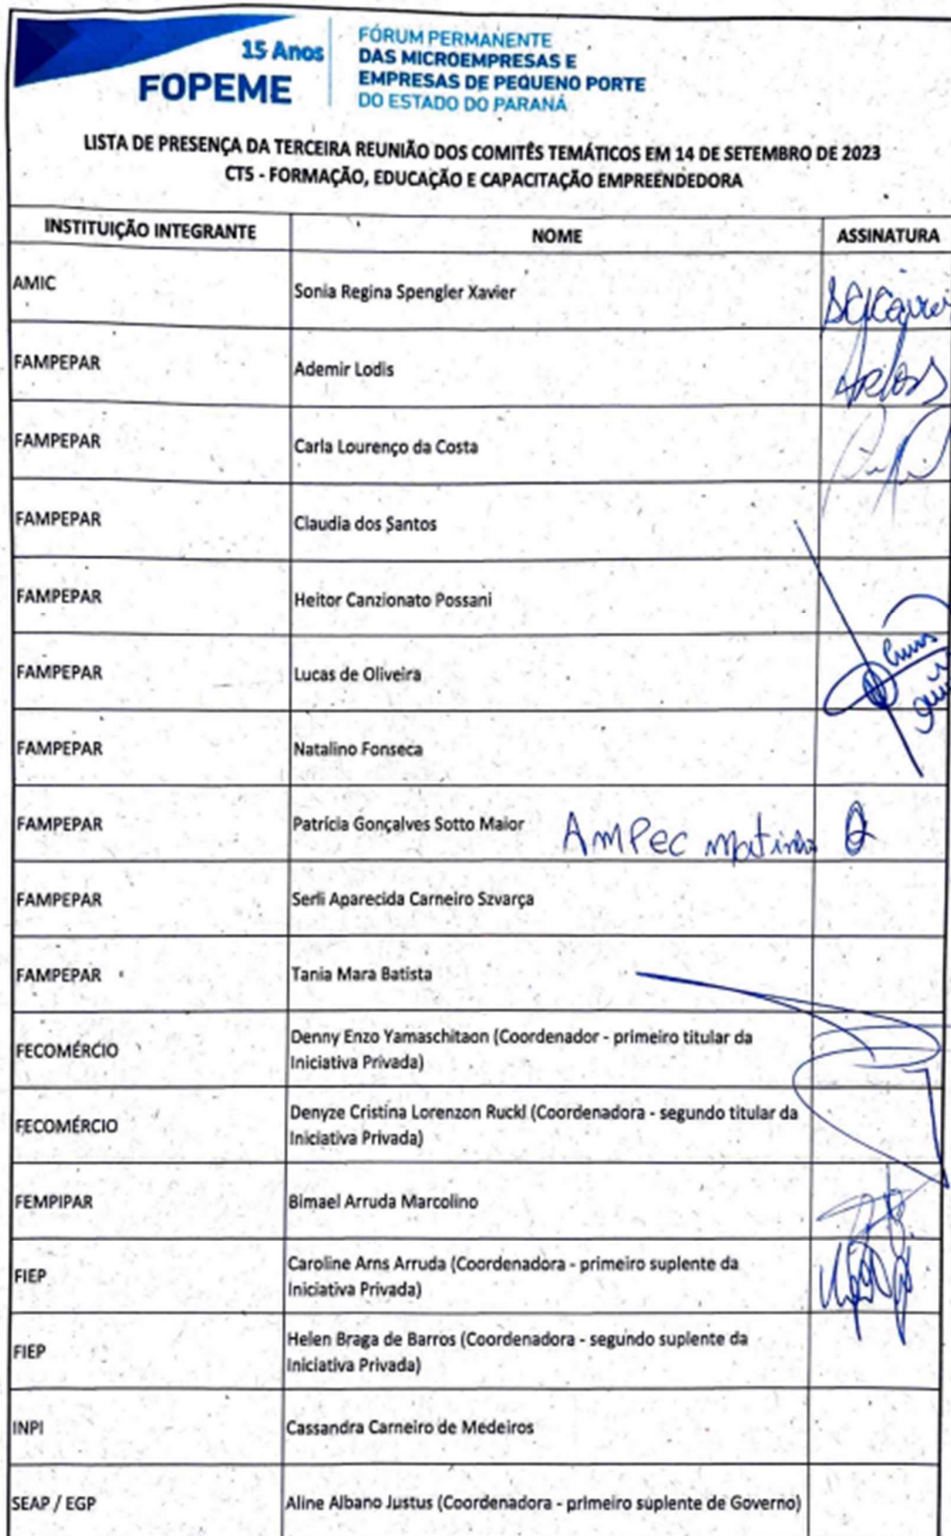 15 Anos
FOPEME
FÓRUM PERMANENTE
DAS MICROEMPRESAS E
EMPRESAS DE PEQUENO PORTE
DO ESTADO DO PARANÁ
LISTA DE PRESENÇA DA TERCEIRA REUNIÃO DOS COMITÊS TEMÁTICOS EM 14 DE SETEMBRO DE 2023
CT5 - FORMAÇÃO, EDUCAÇÃO E CAPACITAÇÃO EMPREENDEDORA
INSTITUIÇÃO INTEGRANTE NOME ASSINATURA
AMIC Sonia Regina Spengler Xavier
FAMPEPAR Ademir Lodis
FAMPEPAR Carla Lourenço da Costa
FAMPEPAR Claudia dos Santos
FAMPEPAR Heitor Canzionato Possani
FAMPEPAR Lucas de Oliveira
FAMPEPAR Natalino Fonseca
FAMPEPAR Patrícia Gonçalves Sotto Maior AMPEC
FAMPEPAR Serli Aparecida Carneiro Szvarça
FAMPEPAR Tania Mara Batista
FECOMÉRCIO Denny Enzo Yamaschitaon (Coordenador - primeiro titular da
Iniciativa Privada)
FECOMÉRCIO Denyze Cristina Lorenzon Ruckl (Coordenadora - segundo titular da
Iniciativa Privada)
FEMPIPAR Bimael Arruda Marcolino
FIEP Caroline Arns Arruda (Coordenadora - primeiro suplente da
Iniciativa Privada)
FIEP Helen Braga de Barros (Coordenadora - segundo suplente da
Iniciativa Privada)
INPI Cassandra Carneiro de Medeiros
SEAP / EGP Aline Albano Justus (Coordenadora - primeiro suplente de Governo)